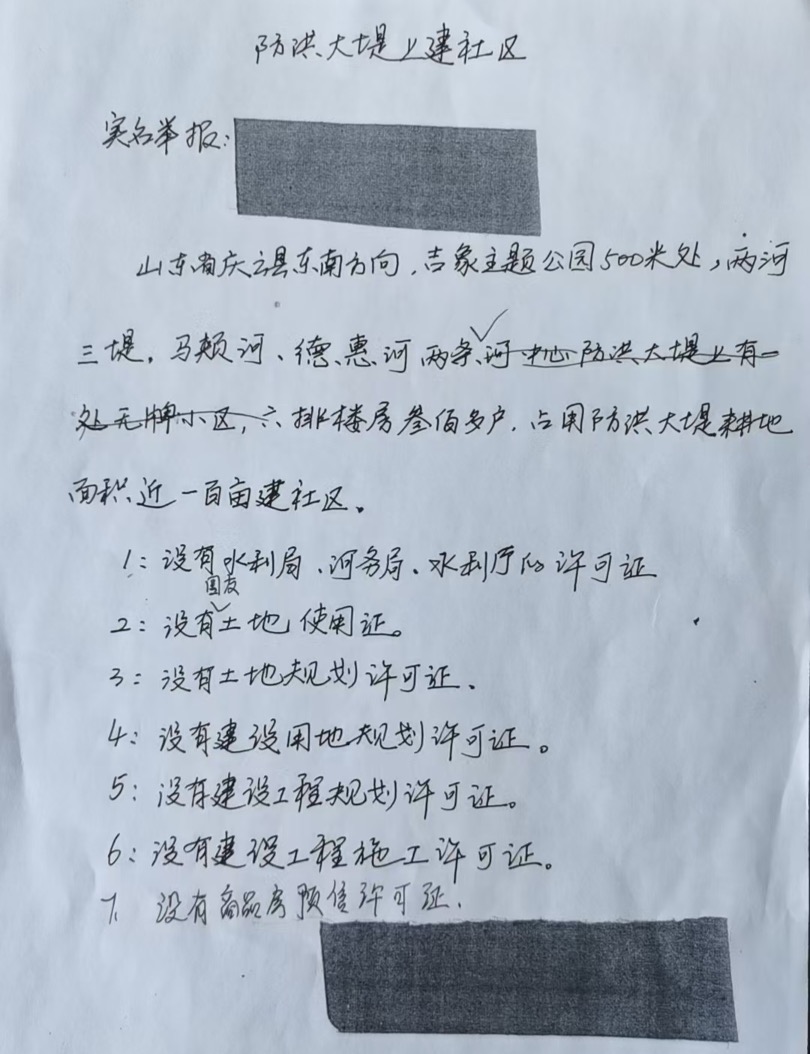 防洪大堤上建社区
实名举报:
山东省庆云县东南方向,吉象主题公园500米处,两河
三堤,马颊河、德惠河两条河中心防洪大堤上有一
处无牌小区,六排楼房叁佰多户.占用防洪大堤耕地
面积近一百亩建社区。
1:没有水利局、河务局、水利厅的许可证
国有
2:没有土地使用证。
3:没有土地规划许可证、
4:没有建设用地规划许可证。
5:没有建设工程规划许可证。
6:没有建设工程施工许可证。
7. 没有商品房预售许可证.